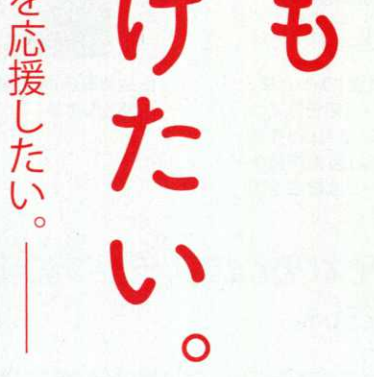 も
けたい。
を応援したい。